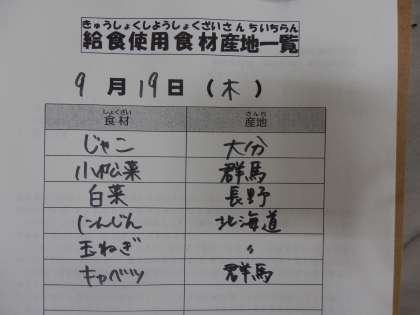 きゅうしょくしようしょくざいさんちいちらん
給食使用食材産地一覧
9月19日(木)
しょくざい さんち
食材 産地
じゃこ 大分
小松菜 群馬
白菜 長野
にんじん 北海道
玉ねぎ 〃
キャベツ 群馬